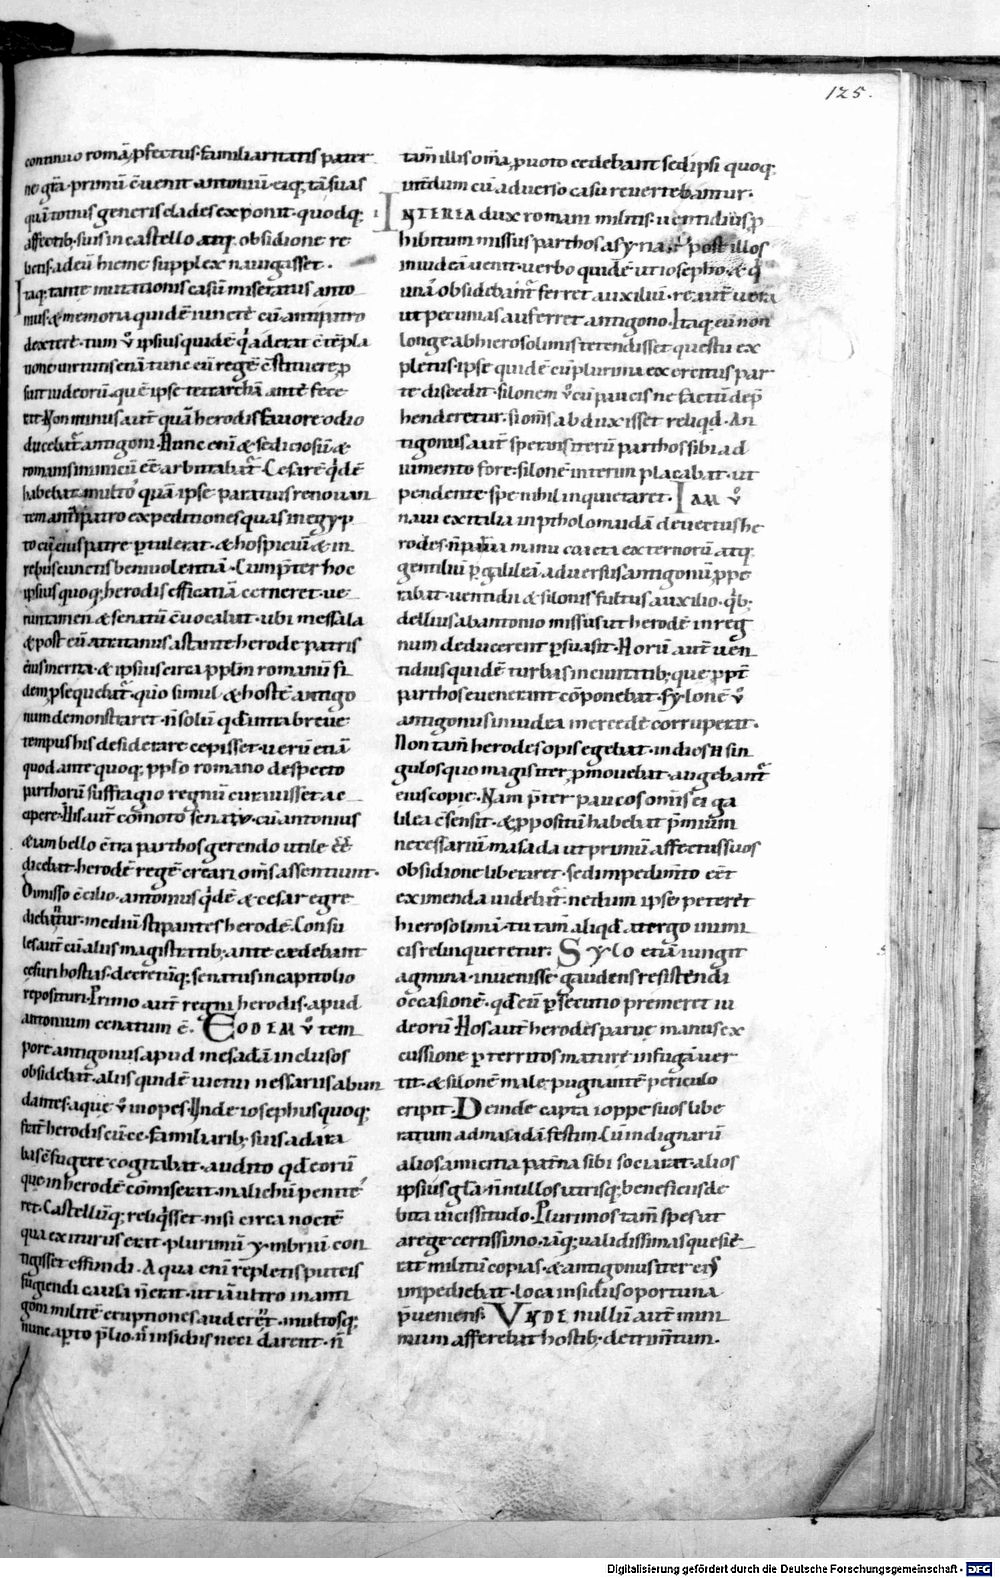 125.
continuo romā ꝓfectus. familiaritatis pater
ne gr̄a. primū cōuenit antoniū. eiq; tā suas
quā totius generis clades exponit. quodq;
affectib; suis in castello atq; obsidione re
lictis. ad eū hieme supplex nauigasset.
Itaq; tante mutationis casū miseratus anto
nius. & memoria quidē iuncte cū antipatro
dextere. tum ů ipsius quidē qͥ aderat cōtēpla
tione uirtutis etiā tunc eū regē cōstituere ꝓ
fuit iudeorū. quē ipse tetrarchā ante fece
rat. Non minus aut̄ quā herodis fauore odio
ducebat᷑ antigoni. Hunc eni & sediciosū &
romanis inimicū eē arbitrabat᷑. Cesarē qͥdē
habebat multo quā ipse paratius renouan
tem antipatro expeditiones quas in egyp
to cū eius patre ꝑtulerat. & hospiciū & in
rebus cunctis beniuolentiā. Cum p̄ter hoc
ipsius quoq; herodis efficatiā cerneret. ue
runtamen & senatū cōuocabat. ubi messala
& post eū atratinus astante herode patris
eius merita. & ipsius circa pplm romanū fi
dem ꝓsequebat᷑. quo simul & hostē antigo
num demonstraret. n̄ solū qd̄ iuxta breue
tempus his desiderare cepisset. uerū etiā
quod ante quoq; pplo romano despecto
parthorū suffragio regnū curauisset ac
cipere. His aut̄ cōmoto senatu. cū antonius
etiam bello cōtra parthos gerendo utile eē
dicebat. herodē regē creari om̄s assentiunt.
Dimisso cōcilio. antonius qͥdē & cesar egre
diebant᷑. mediū stipantes herodē. Consu
les aut̄ cū aliis magistratib; ante cædebant
cesuri hostias. decretūq; senatus in capitolio
reposituri. Primo aut̄ regni herodis. apud
antonium cenatum ē. EODEM ů tem
pore antigonus apud mesadā inclusos
obsidebat. aliis quidē uictui nessariis abun
dantes. aque ů inopes. Unde iosephus quoq;
frat̄ herodis cū cc. familiarib; suis ad ara
bas effugere cogitabat. audito qd̄ eorū
que in herodē cōmiserat. malichū penite
ret. Castellūq; reliqͥsset. nisi circa noctē
qua exiturus erat. plurimū ymbriū con
tigisset effundi. Aqua eni repletis puteis
fugiendi causa n̄ erat. ut iā ultro in anti
goni militē eruptiones auderēt. multosq;
nunc aꝑto p̄lio. n̄ insidiis neci darent. n̄
tam̄ illis om̄ia ꝓ uoto cedebant sed ipsi quoq;
int̄dum cū aduerso casu reuertebantur.
INTEREA dux romani militis. uentidius ꝓ
hibitum missus parthos a syria. post illos
in iudeā uenit. uerbo quidē ut iosepho. & q̄
unā obsidebant᷑ ferret auxiliū. re aut̄ uera
ut pecunias auferret antigono. Itaq; cū non
longe ab hierosolimis tetendisset questu ex
pletus. ipse quidē cū plurima exercitus par
te discedit. silonem ů cū paucis ne factū dep̄
henderetur. si om̄s abduxisset reliqd̄. An
tigonus aut̄ sperans iterū parthos sibi ad
iumento fore. silonē interim placabat. ut
pendente spe nihil inquietaret. IAM ů
naui ex italia in ptholomaidā deuectus he
rodes. n̄ parua manu coacta externorū atq;
gentiliū ꝑ galileā aduersus antigonū ꝓpe
rabat. uentidii & silonis fultus auxilio. qͥb;
dellius ab antonio missus ut herodē in reg
num deducerent ꝑsuasit. Horū aut̄ uen
tidius quidē turbas in ciuitatib; que ꝓpt̄
parthos euenerant cōponebat. sylonē ů
antigonus in iudea mercedē corruperat.
Non tam̄ herodes opis egebat. in dies n̄ sin
gulos quo magis iter ꝓmouebat. augebant᷑
ei copie. Nam p̄ter paucos om̄is ei ga
lilea cōsensit. & ꝓpositū habebat p̄mium
necessariū masada ut primū affectus suos
obsidione liberaret. sed impedim̄to eēt
eximenda uidebat᷑. ne dum ipse peteret
hierosolimā. tutam aliqd̄ a tergo inimi
cis relinqueretur. Sylo etiā iungit
agmina. inuenisse gaudens resistendi
occasionē. qd̄ eū ꝑsecutio premeret iu
deorū. Hos aut̄ herodes parue manus ex
cussione ꝑterritos mature in fugā uer
tit. & silonē male pugnantē periculo
eripit. Deinde capta ioppe suos libe
ratum ad masadā festin. Cū indignarū
alios amicitia pat̄na sibi sociarat. alios
ipsius gl̄a. n̄ntillos utrisq; beneficiis de
bita uicissitudo. Plurimos tam̄ spes ut
a rege certissimo. iāq; ualidissimas quesie
rat militū copias. & antigonus iter eiꝰ
impediebat. loca insidiis oportuna
p̄ueniens. VNDE nullū aut mini
mum afferebat hostib; detrim̄tum.
Digitalisierung gefördert durch die Deutsche Forschungsgemeinschaft - DFG